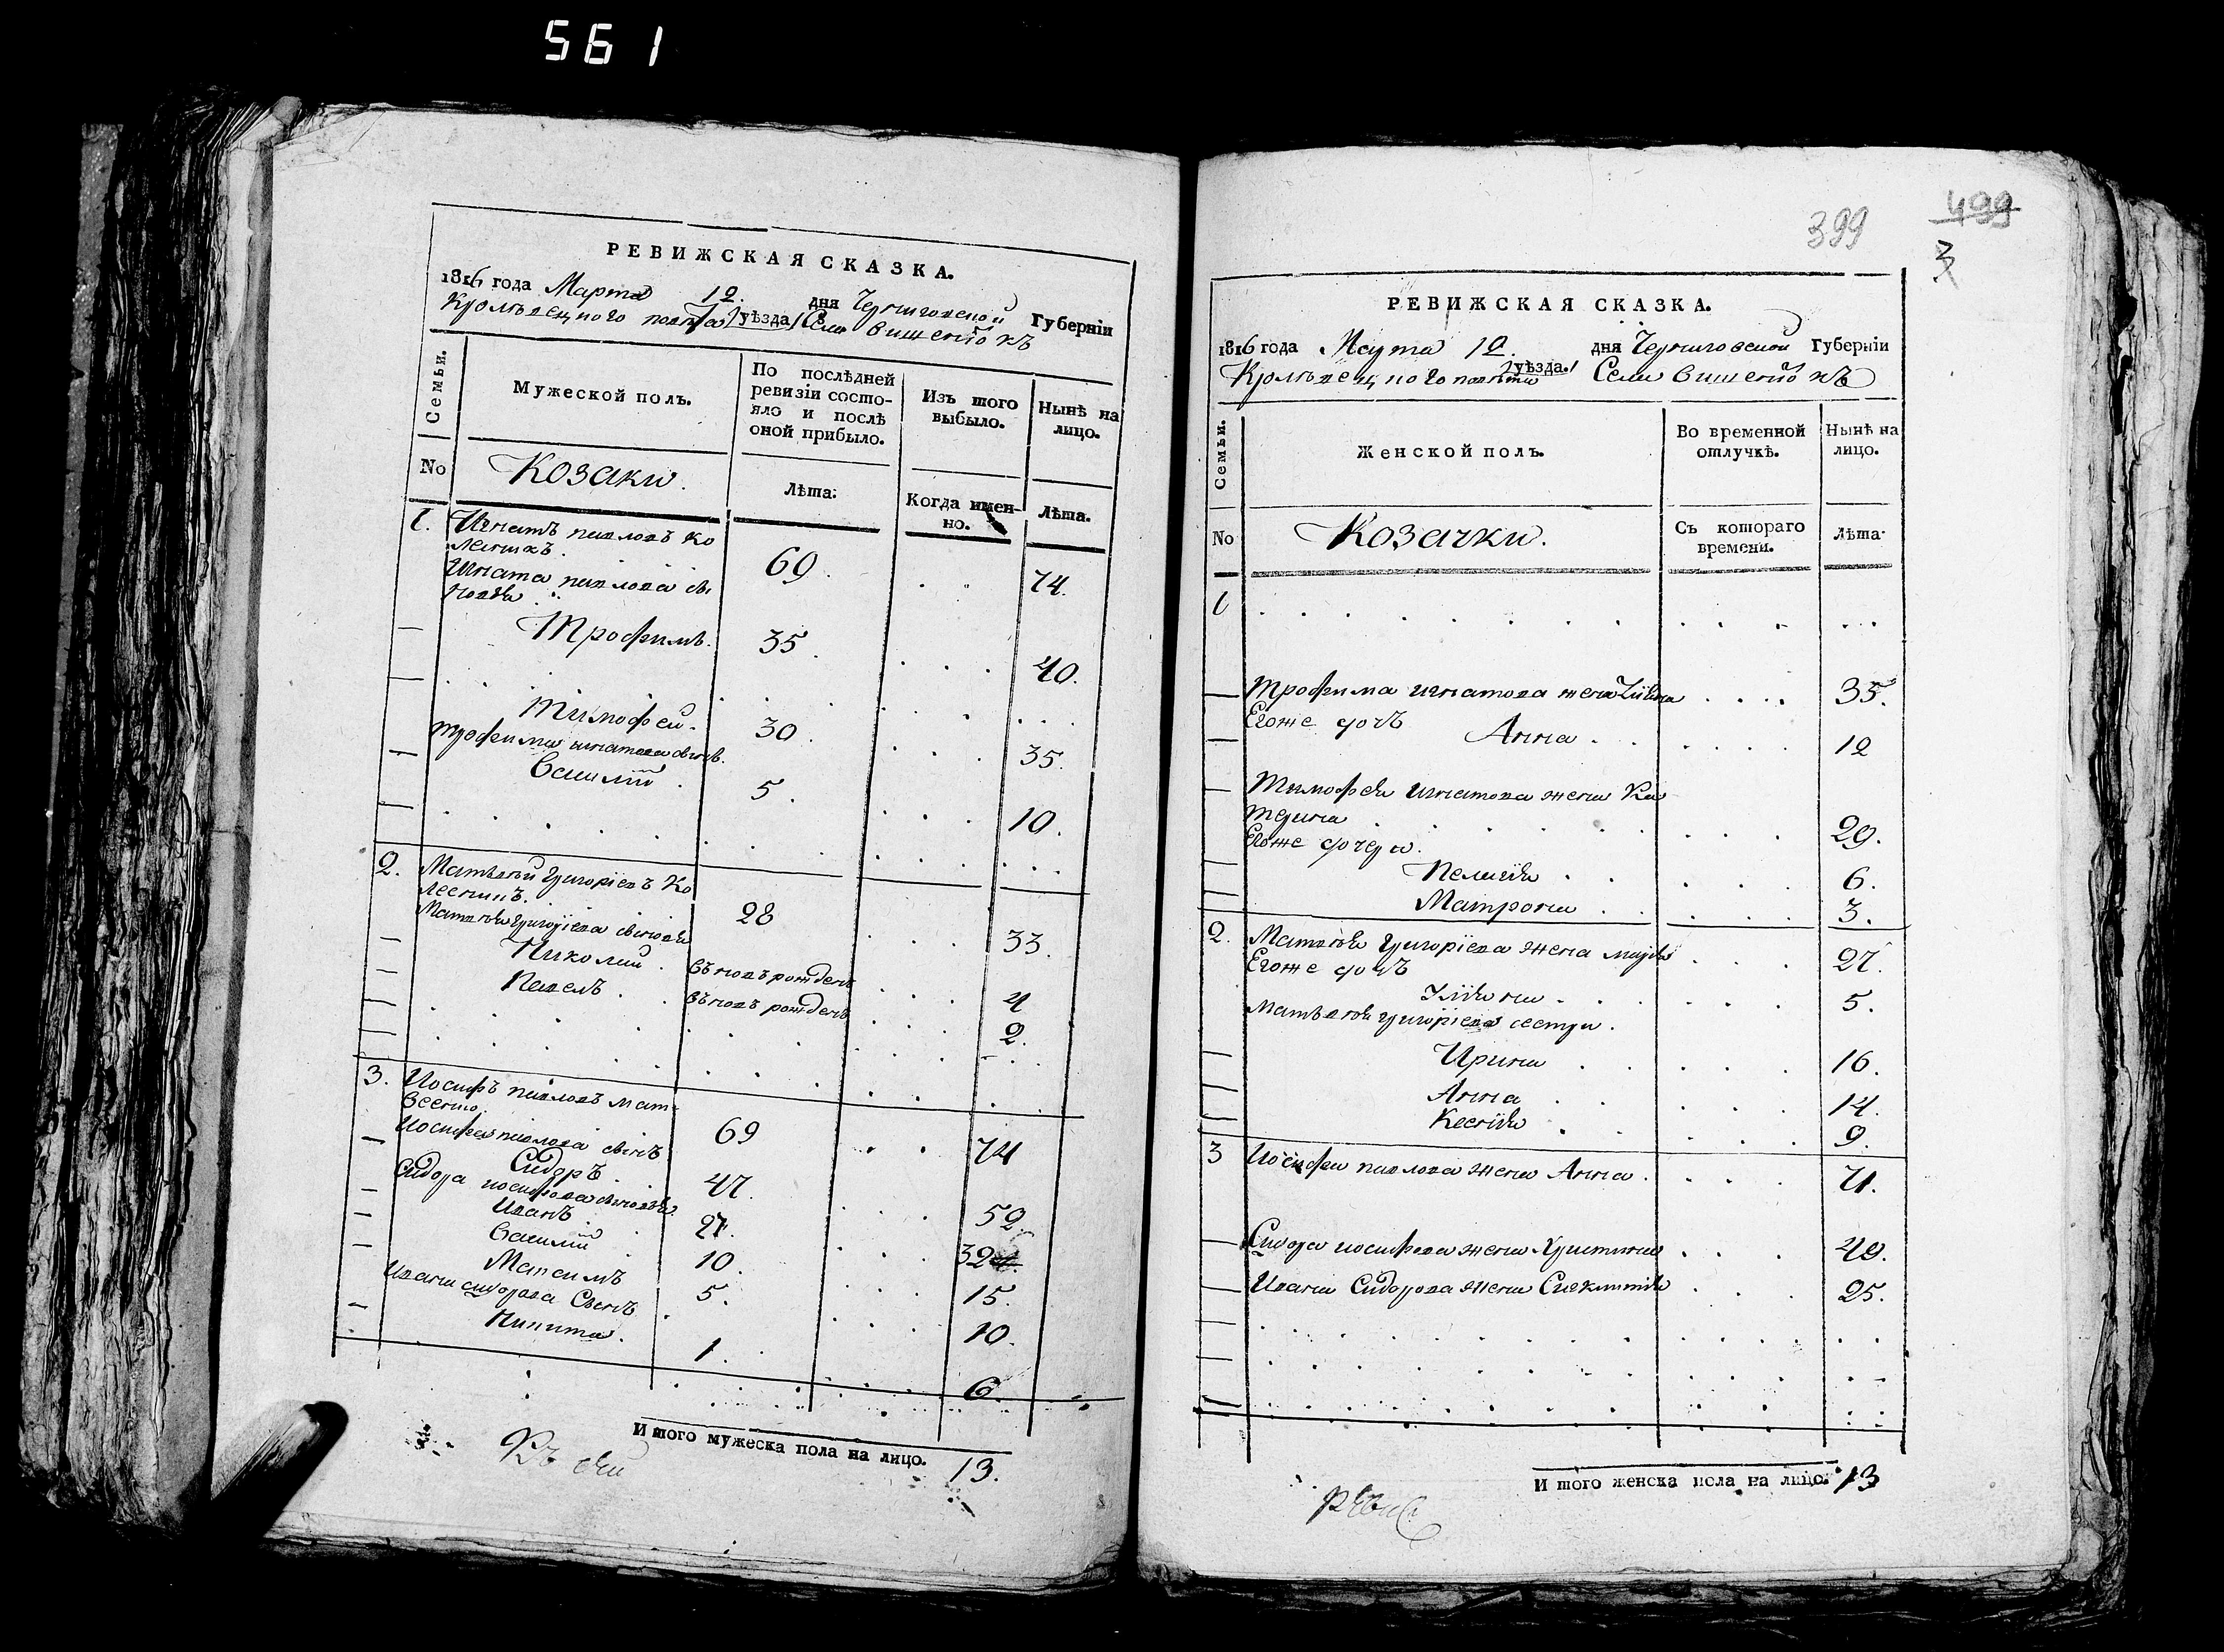 561
РЕВИЖСКАЯ СКАЗКА.
1816 года Марта 12. дня Черниговской Губерніи
Кролѣвецкого повѣта /уѣзда/ Села Вишенокъ
Семьи.
Мужеской полъ.
По послѣдней ревизіи состо-
яло и послѣ
оной прибыло.
Изъ того
выбыло.
Нынѣ на
лицо.
No
Козаки.
Лѣта:
Когда имен-
но.
Лѣта.
1. Игнатъ павловъ Ко
лесникъ. 69. 74.
Игната павлова сы
новья
Трофимъ. 35. 40.
Тимофей. 30. 35.
Трофима игнатова сынъ.
Василій. 5. 10.
2. Матвѣй григоріевъ Ко
лесникъ. 28 33.
Матвѣя григоріева сыновья
Николай. въ новъ рожденъ 4
Павелъ. въ новъ рожденъ 2.
3. Иосифъ павловъ Мат-
веенко. 69 74
Иосифа павлова сынъ
Сидоръ 47. 52.
Сидора иосифова сыновья.
Иванъ 27. 32
Василій 10. 15.
Максимъ 5. 10.
Ивана сидорова Сынъ
Никита. 1. 6.
И того мужеска пола на лицо. 13.
399
499
3
РЕВИЖСКАЯ СКАЗКА.
1816 года Марта 12. дня Черниговской Губерніи
Кролѣвецкого повѣта /уѣзда./ Села Вишенокъ
Семьи.
Женской полъ.
Во временной
отлучкѣ.
Нынѣ на
лицо.
No
Козачки.
Съ котораго
времени.
Лѣта
1
Трофима игнатова жена 35.
Егоже дочь
Анна. 12
Тимофея игнатова жена Ка
терина 29.
Егоже дочери.
Пелагія 6.
Матрона 3.
2. Матвѣя григоріева жена марья 27.
Егоже дочь
Уліяна 5.
Матвѣя григоріева сестры.
Ирина 16.
Анна 14.
Ксенія 9.
3 Иосифа павлова жена Анна. 71.
Сидора иосифова жена Христина 48.
Ивана Сидорова жена 25.
И того женска пола на лицо. 13